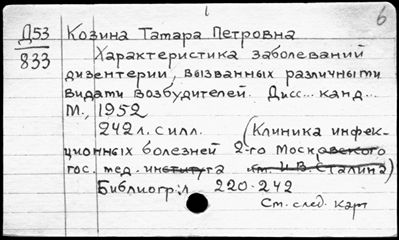 6
Д53 Козина Татара Петровна
833 Характеристика заболеваний
дизентерии, вызванных различными
видами возбудителей. Дисс... канд...
М., 1952
242 л. с илл. (Клиника инфек-
ционных болезней 2-го Московского
гос. мед. института им. И.В. Сталина)
Библиогр: л 220-242
См. след. карт